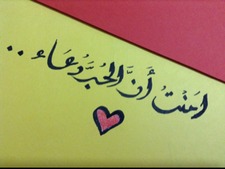 امنتُ أنَّ الحُبَّ دُعَاء ..